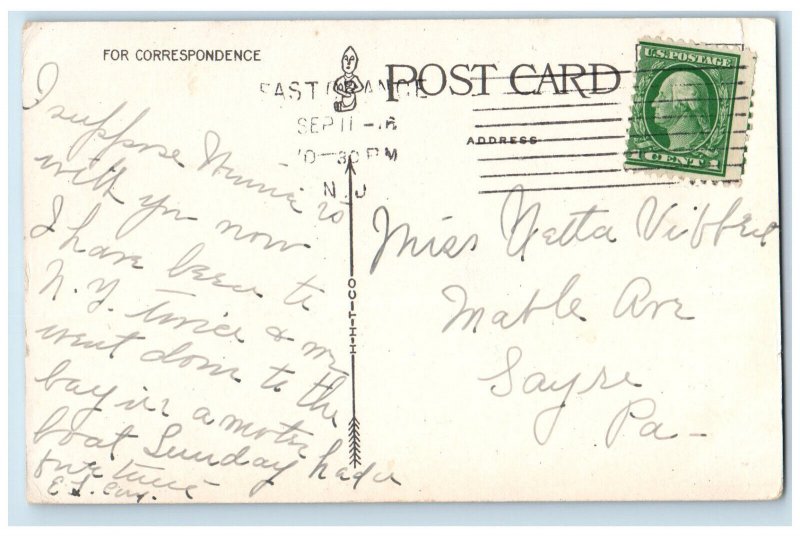 FOR CORRESPONDENCE
POST CARD
EAST ORANGE
SEP 11
30 PM
N J
ADDRESS
U.S. POSTAGE
1 CENT 1
I suppose Winnie is
with you now
I have been to
N.Y. twice &
went down to the
bay in a motor
boat Sunday had a
fine time
H-H-T-CO
Miss Netta Vibbert
Mable Ave
Sayre
Pa-